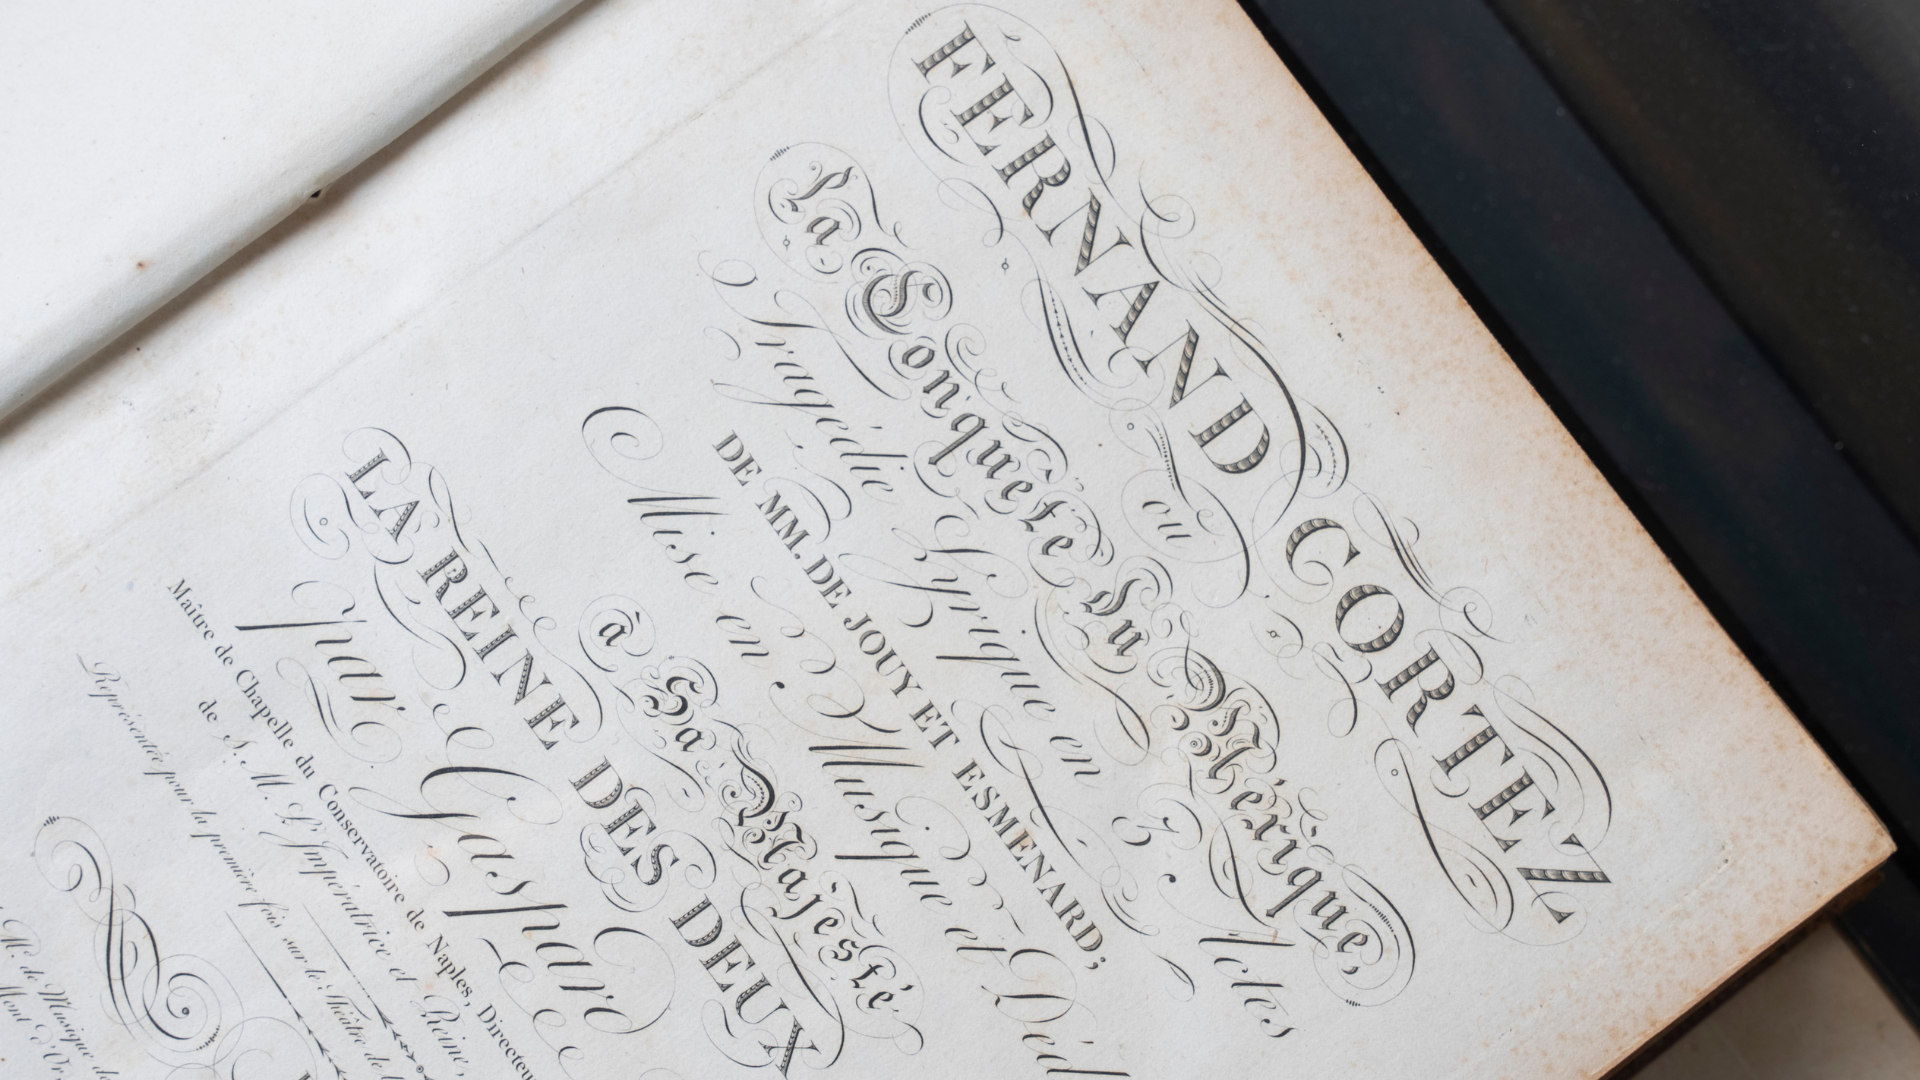 FERNAND CORTEZ
ou
La Conquête du Mexique,
Tragédie Lyrique en 3 Actes
DE MM. DE JOUY ET ESMENARD;
Mise en Musique et Déd
à Sa Majesté
LA REINE DES DEUX
par Gaspard
Maître de Chapelle du Conservatoire de Naples, Directeu
de S. M. L'Impératrice et Reine,
Représentée pour la première fois sur le Théâtre de l
M. de Musique de